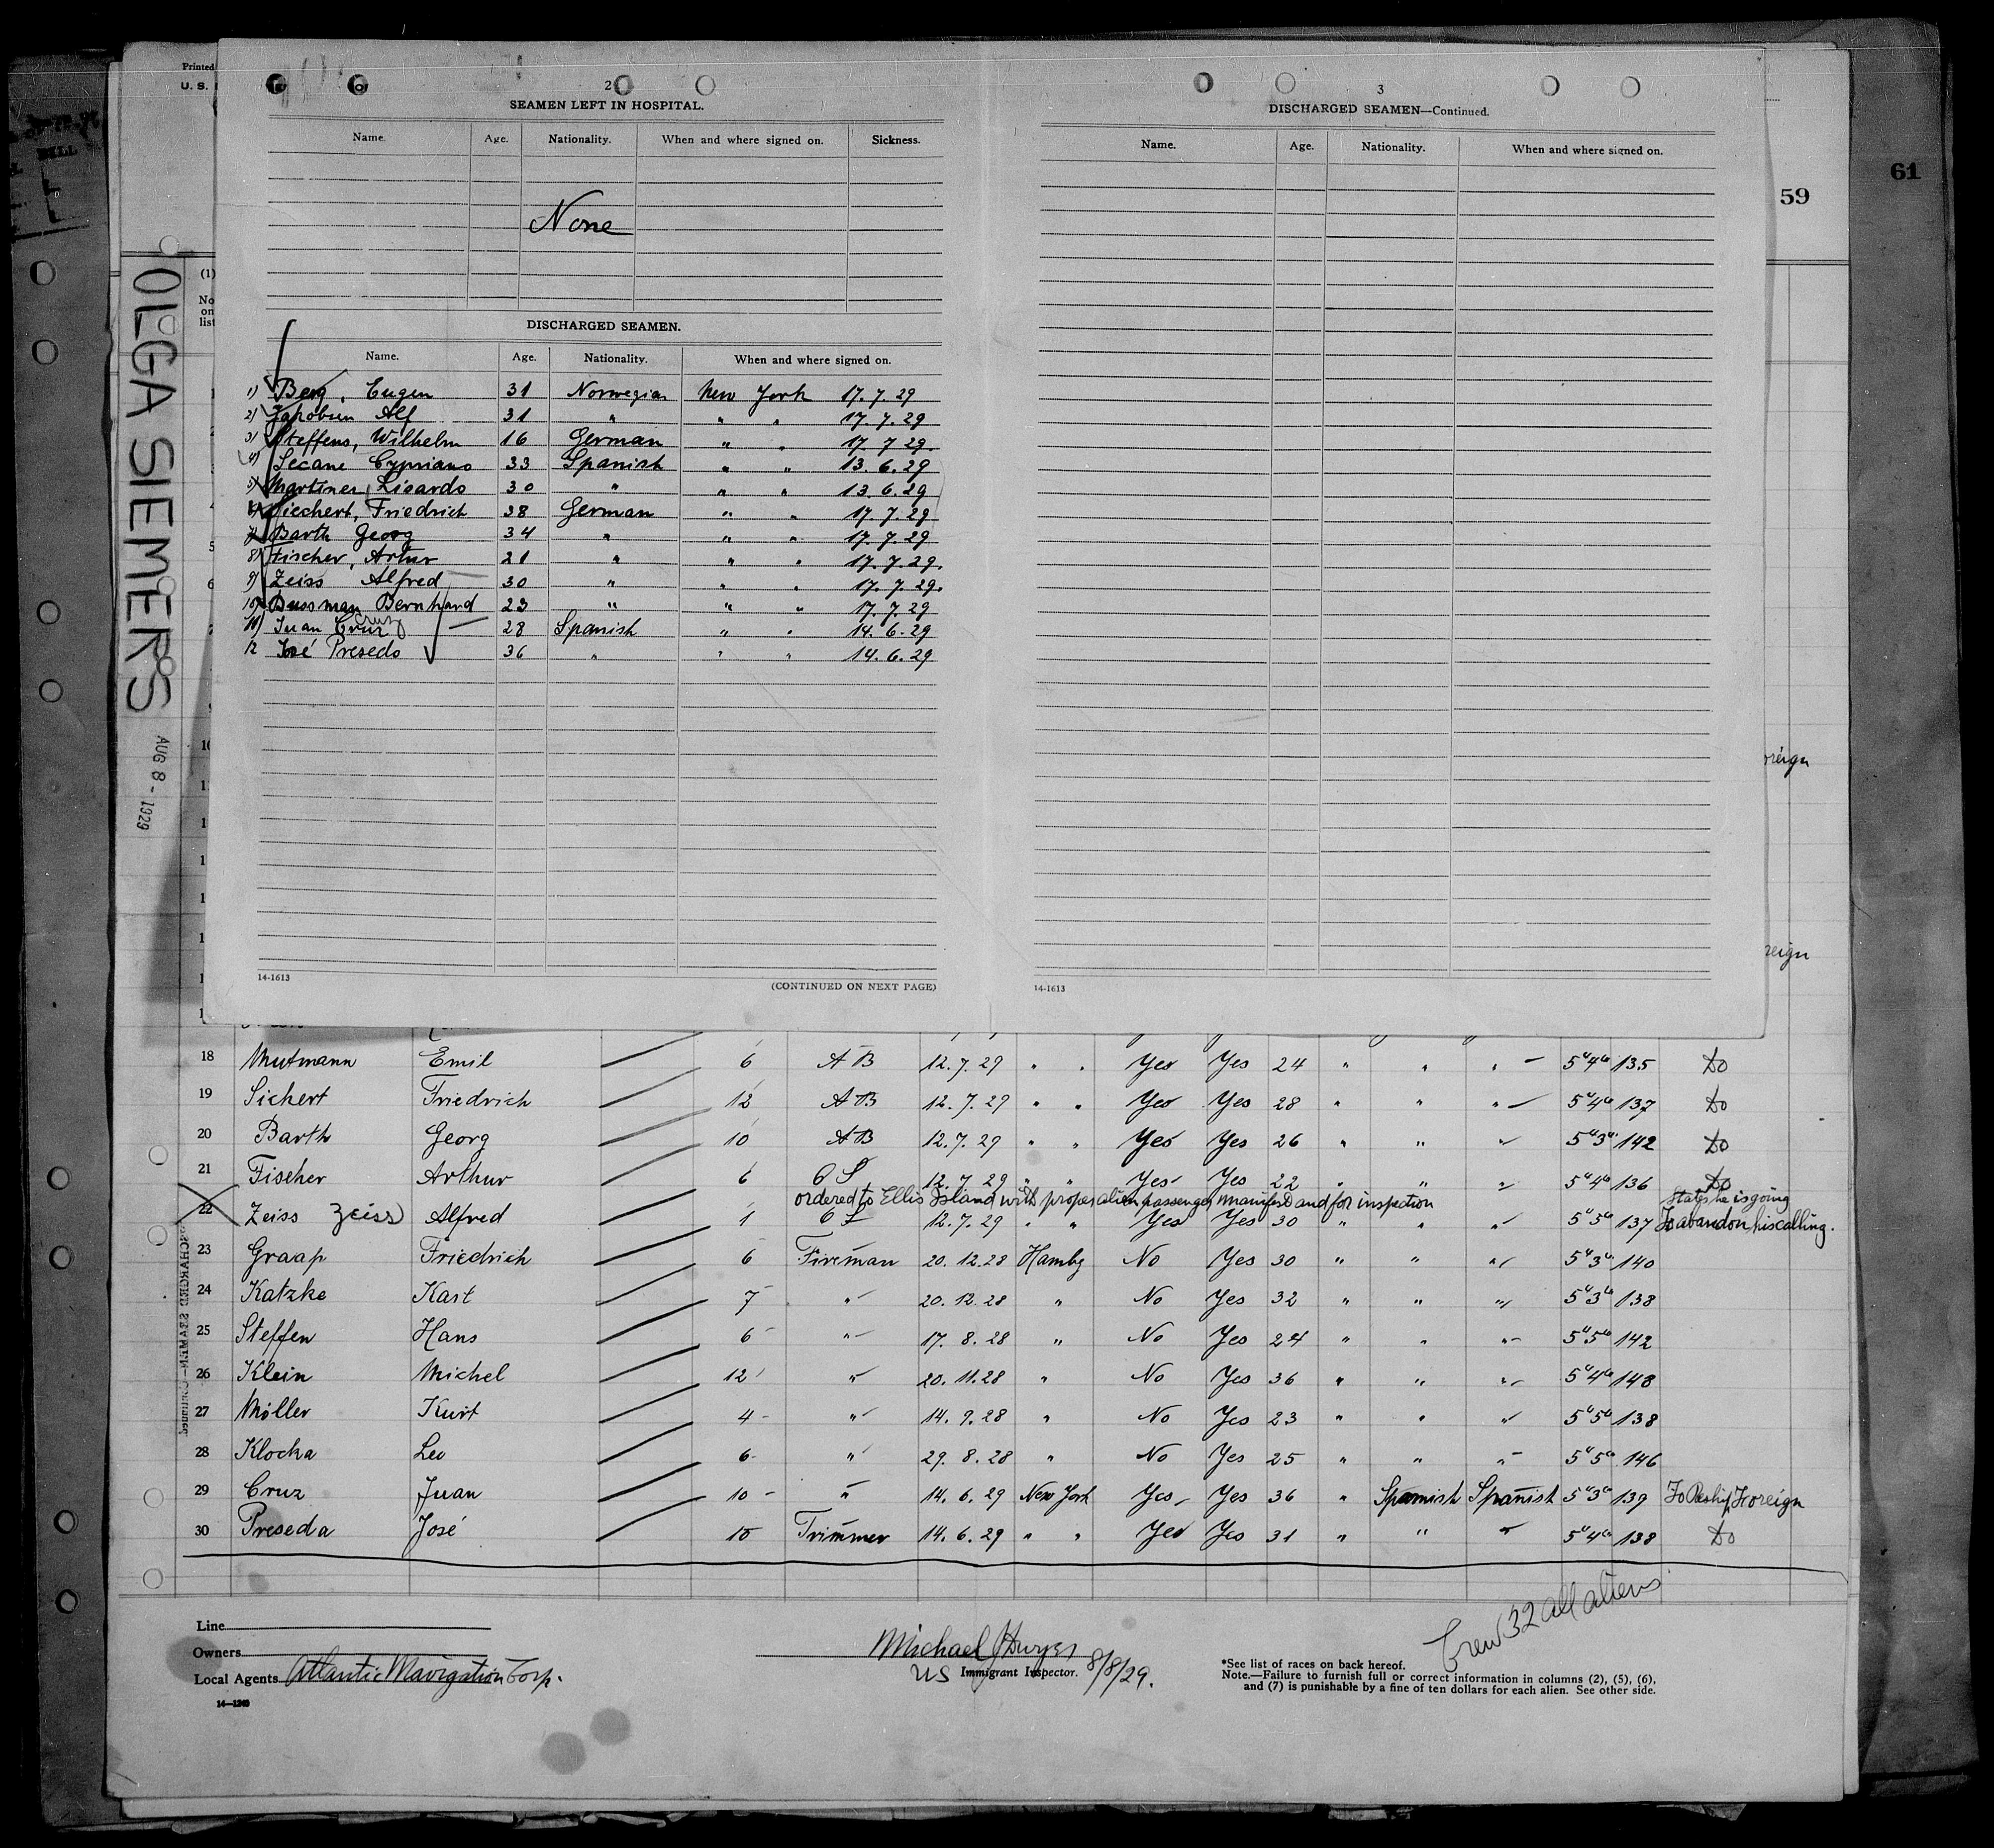 Printed
U. S.
BILL
61
59
OLGA SIEMERS
AUG 8 - 1929
(1)
No
on
list
2
SEAMEN LEFT IN HOSPITAL.
Name. Age. Nationality. When and where signed on. Sickness.
None
DISCHARGED SEAMEN.
Name. Age. Nationality. When and where signed on.
1) Berg, Eugen 31 Norwegian New York 17. 7. 29
2) Jakobsen Alf 31 " " " 17. 7. 29
3) Steffens, Wilhelm 16 German " " 17. 7 29.
4) Secane Cypriano 33 Spanish " " 13. 6. 29
5) Martinez, Lisardo 30 " " " 13. 6. 29
Siechert, Friedrich 38 German " " 17. 7. 29
7) Barth Georg 34 " " " 17. 7. 29
8) Fischer, Artur 21 " " " 17. 7. 29.
9) Zeiss Alfred 30 " " " 17. 7. 29.
10) Bussman Bernhard 23 " " " 17. 7. 29
11) Juan Cruz Cruz 28 Spanish " " 14. 6. 29
12 José Presedo 36 " " " 14. 6. 29
14-1613
(CONTINUED ON NEXT PAGE)
3
DISCHARGED SEAMEN—Continued.
Name. Age. Nationality. When and where signed on.
14-1613
oreign
reign
18 Mutmann Emil 6 AB 12. 7. 29 " " Yes Yes 24 " " " 5'4" 135 Do
19 Sichert Friedrich 12 AB 12. 7. 29 " " Yes Yes 28 " " " 5'4" 137 Do
20 Barth Georg 10 AB 12. 7. 29 " " Yes Yes 26 " " " 5'3" 142 Do
21 Fischer Arthur 6 OS 12. 7. 29 " " Yes Yes 22 " " " 5'4" 136 Do
ordered to Ellis Island with proper alien passenger manifest and for inspection States he is going
22 Zeiss Zeiss Alfred 1 OS 12. 7. 29 " " Yes Yes 30 " " " 5'5" 137 To abandon his calling.
23 Graap Friedrich 6 Fireman 20. 12. 28 Hambg No Yes 30 " " " 5'3" 140
24 Katzke Karl 7 " 20. 12. 28 " No Yes 32 " " " 5'3" 138
25 Steffen Hans 6 " 17. 8. 28 " No Yes 24 " " " 5'5" 142
26 Klein Michel 12 " 20. 11. 28 " No Yes 36 " " " 5'4" 148
27 Möller Kurt 4 " 14. 9. 28 " No Yes 23 " " " 5'5" 138
28 Klocka Leo 6 " 29. 8. 28 " No Yes 25 " " " 5'5" 146
29 Cruz Juan 10 " 14. 6. 29 New York Yes Yes 36 " Spanish Spanish 5'3" 139 To Reship Foreign
30 Preseda José 10 Trimmer 14. 6. 29 " " Yes Yes 31 " " " 5'4" 138 Do
DISCHARGED SEAMEN—Continued
Crew 32 all aliens
Line
Owners
Local Agents Atlantic Navigation Corp.
14—1240
Michael J Dwyer
US Immigrant Inspector. 8/8/29.
*See list of races on back hereof.
Note.—Failure to furnish full or correct information in columns (2), (5), (6),
and (7) is punishable by a fine of ten dollars for each alien. See other side.